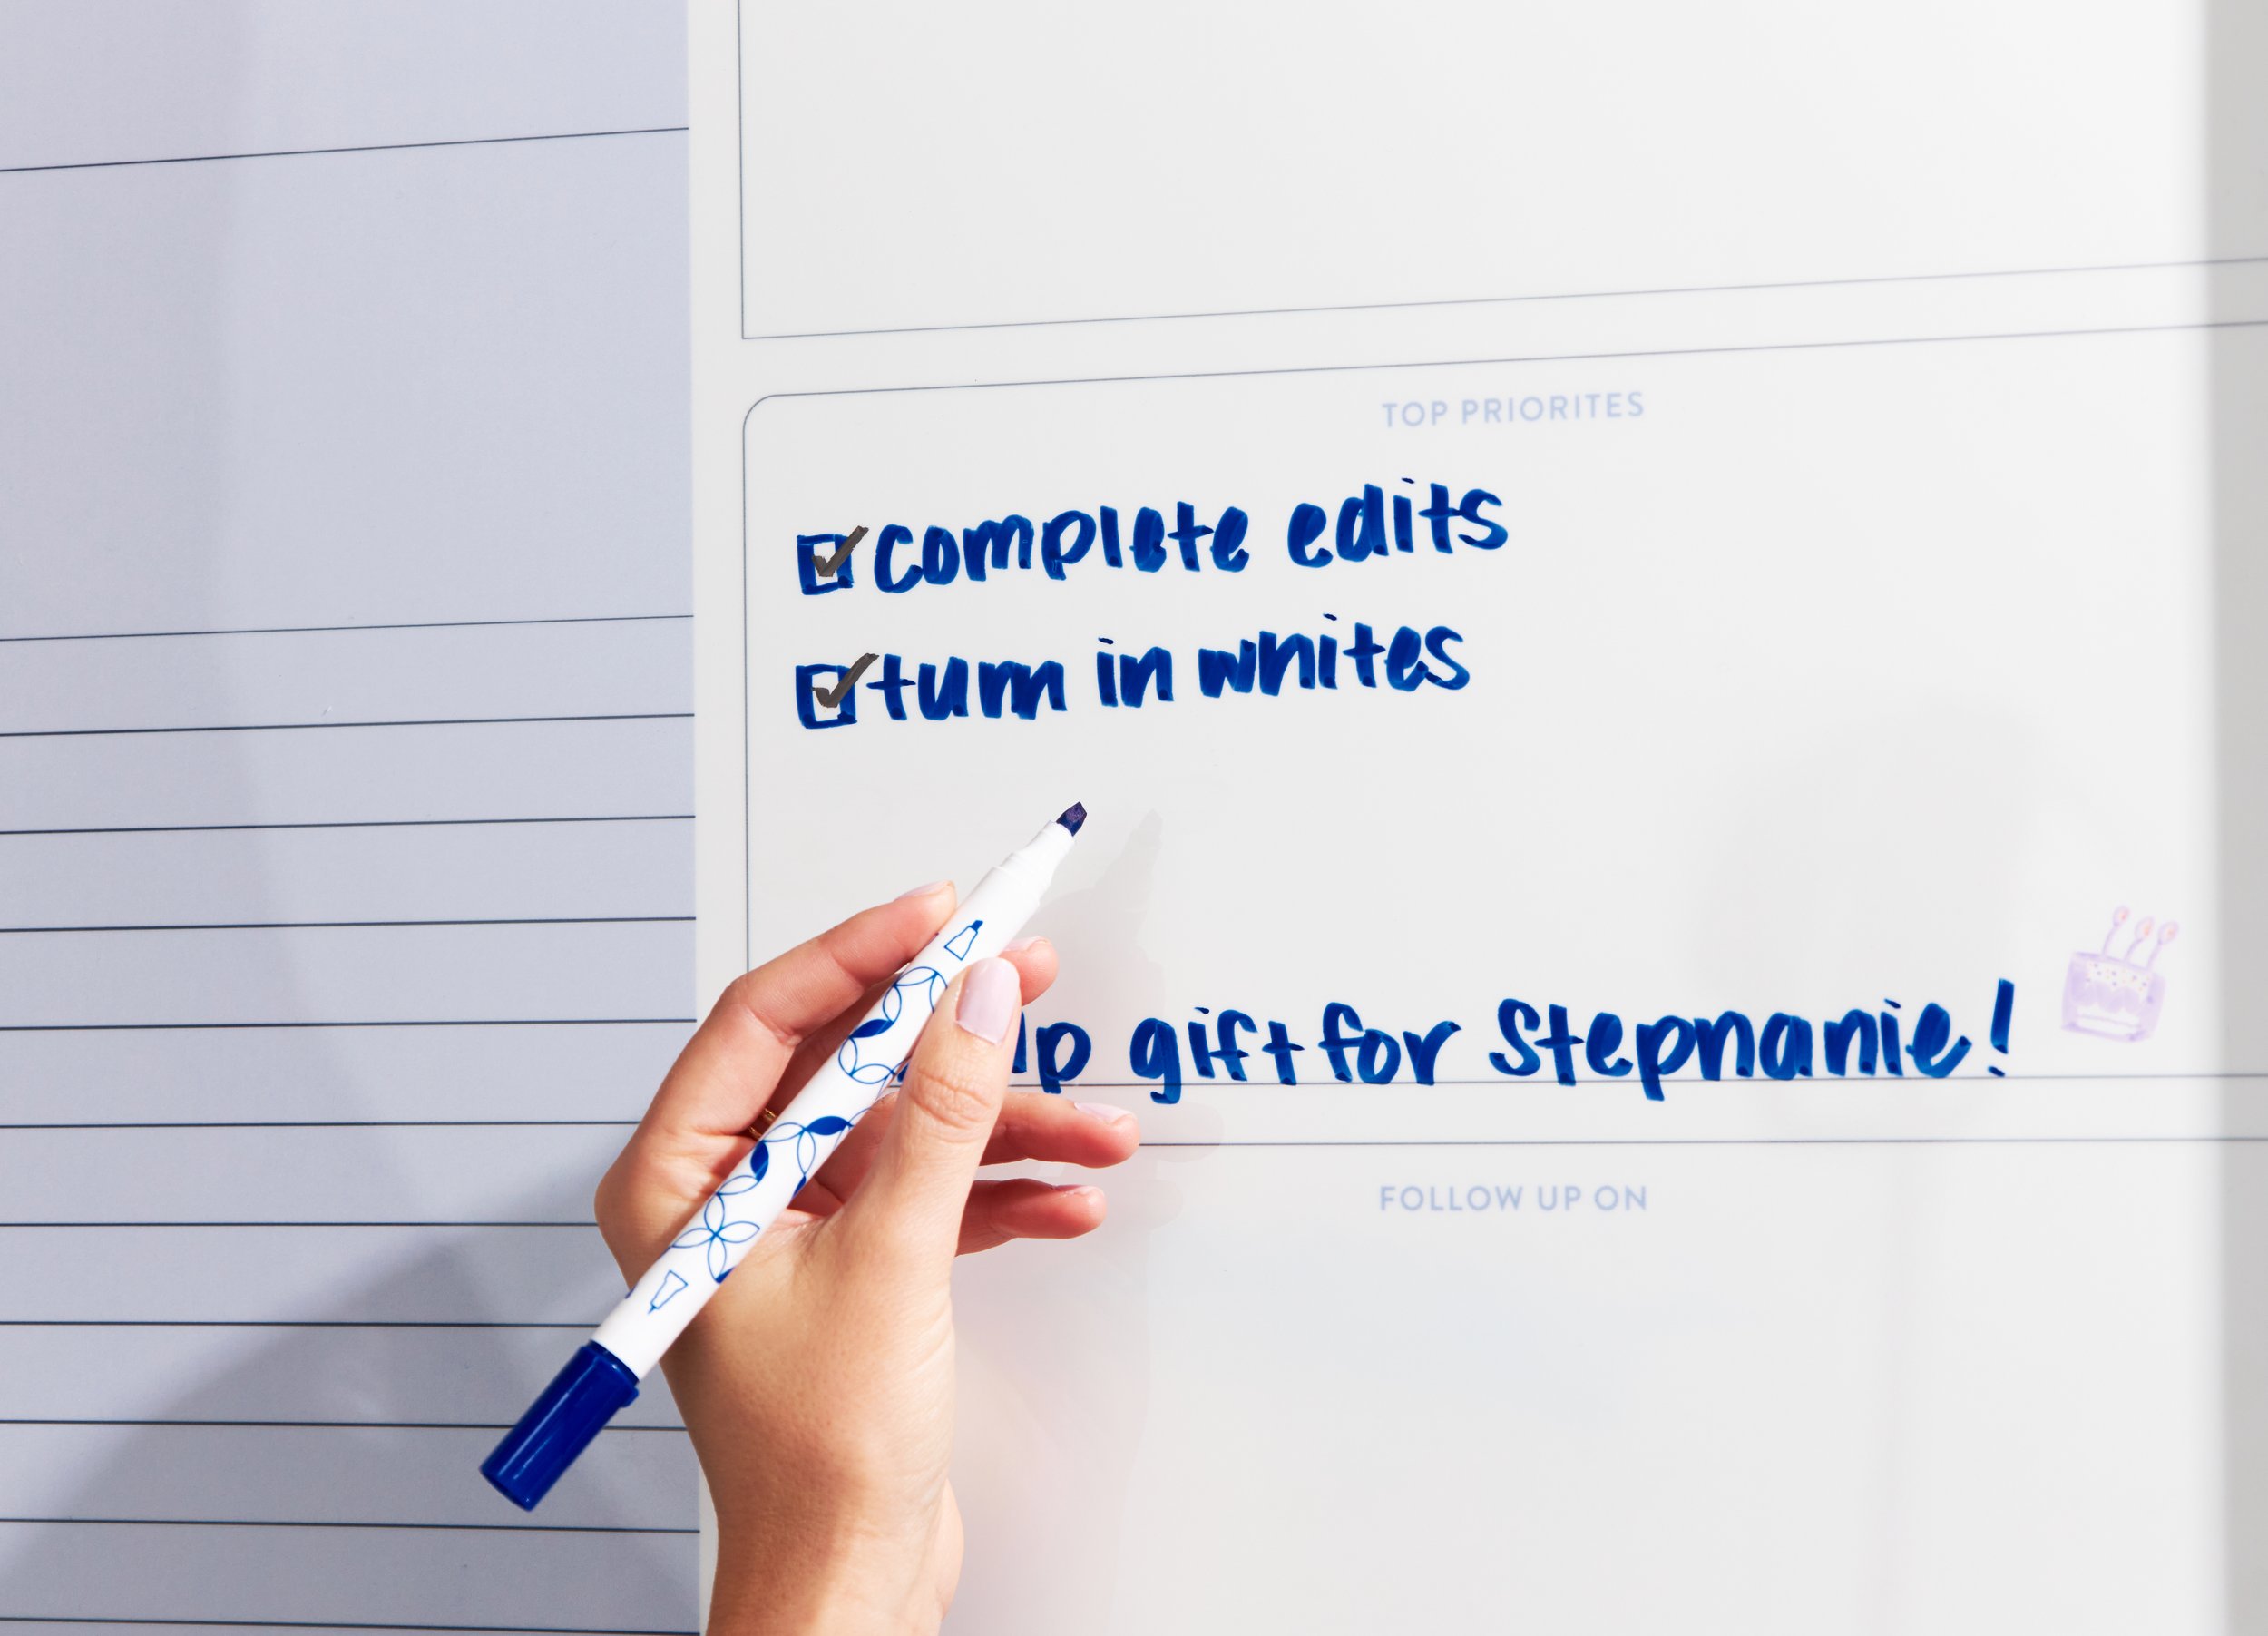 TOP PRIORITES
complete edits
turn in whites
up gift for Stephanie!
FOLLOW UP ON